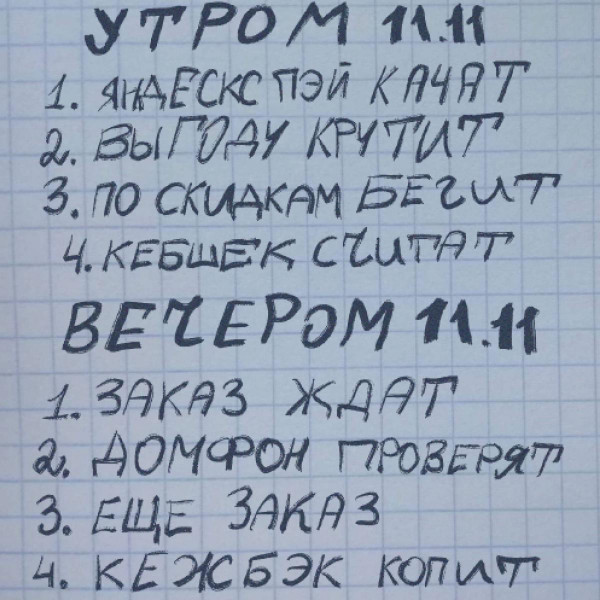 УТРОМ 11.11
1. ЯНДЕСКС ПЭЙ КАЧАТ
2. ВЫГОДУ КРУТИТ
3. ПО СКИДКАМ БЕГИТ
4. КЕБШЕК СЧИТАТ
ВЕЧЕРОМ 11.11
1. ЗАКАЗ ЖДАТ
2. ДОМФОН ПРОВЕРЯТ
3. ЕЩЕ ЗАКАЗ
4. КЕЖБЭК КОПИТ